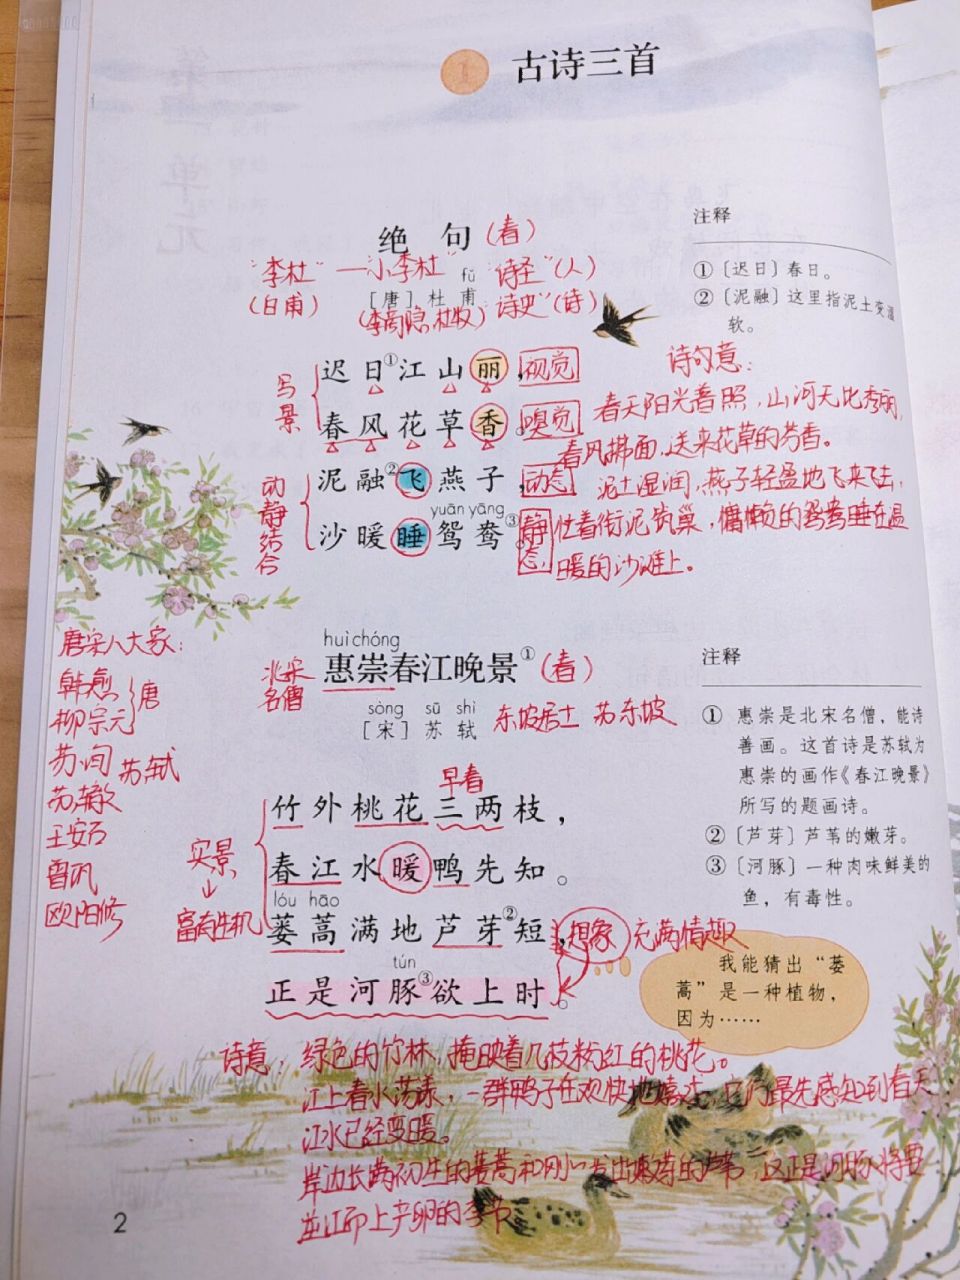 1 古诗三首
绝句（春）
“李杜”—“小李杜” “诗圣”（人）
fǔ
（白甫） ［唐］杜甫 （李商隐、杜牧） 诗史”（诗）
注释
①〔迟日〕春日。
②〔泥融〕这里指泥土变湿
软。
写景
迟日①江山丽，视觉
春风花草香。嗅觉
动静结合
泥融②飞燕子，动态
yuān yāng
沙暖睡鸳鸯③。静态
诗句意：
春天阳光普照，山河无比秀丽，
春风拂面，送来花草的芳香。
泥土湿润，燕子轻盈地飞来飞去，
忙着衔泥筑巢，慵懒的鸳鸯睡在温
暖的沙滩上。
唐宋八大家：
韩愈
柳宗元 }唐
苏洵 苏轼
苏辙
王安石
曾巩
欧阳修
huì chóng
北宋名僧 惠崇春江晚景①（春）
sòng sū shì
［宋］苏轼 东坡居士 苏东坡
早春
竹外桃花三两枝，
春江水暖鸭先知。
lóu hāo
蒌蒿满地芦芽②短，
tún
正是河豚③欲上时。
实景
↓
富有生机
想象 充满情趣
注释
① 惠崇是北宋名僧，能诗
善画。这首诗是苏轼为
惠崇的画作《春江晚景》
所写的题画诗。
②〔芦芽〕芦苇的嫩芽。
③〔河豚〕一种肉味鲜美的
鱼，有毒性。
我能猜出“蒌
蒿”是一种植物，
因为……
诗意：绿色的竹林，掩映着几枝粉红的桃花。
江上春水荡漾，一群鸭子在欢快地嬉戏，它们最先感知到春天
江水已经变暖。
岸边长满初生的蒌蒿和刚发出嫩芽的芦苇，这正是河豚将要
逆江而上产卵的季节
2